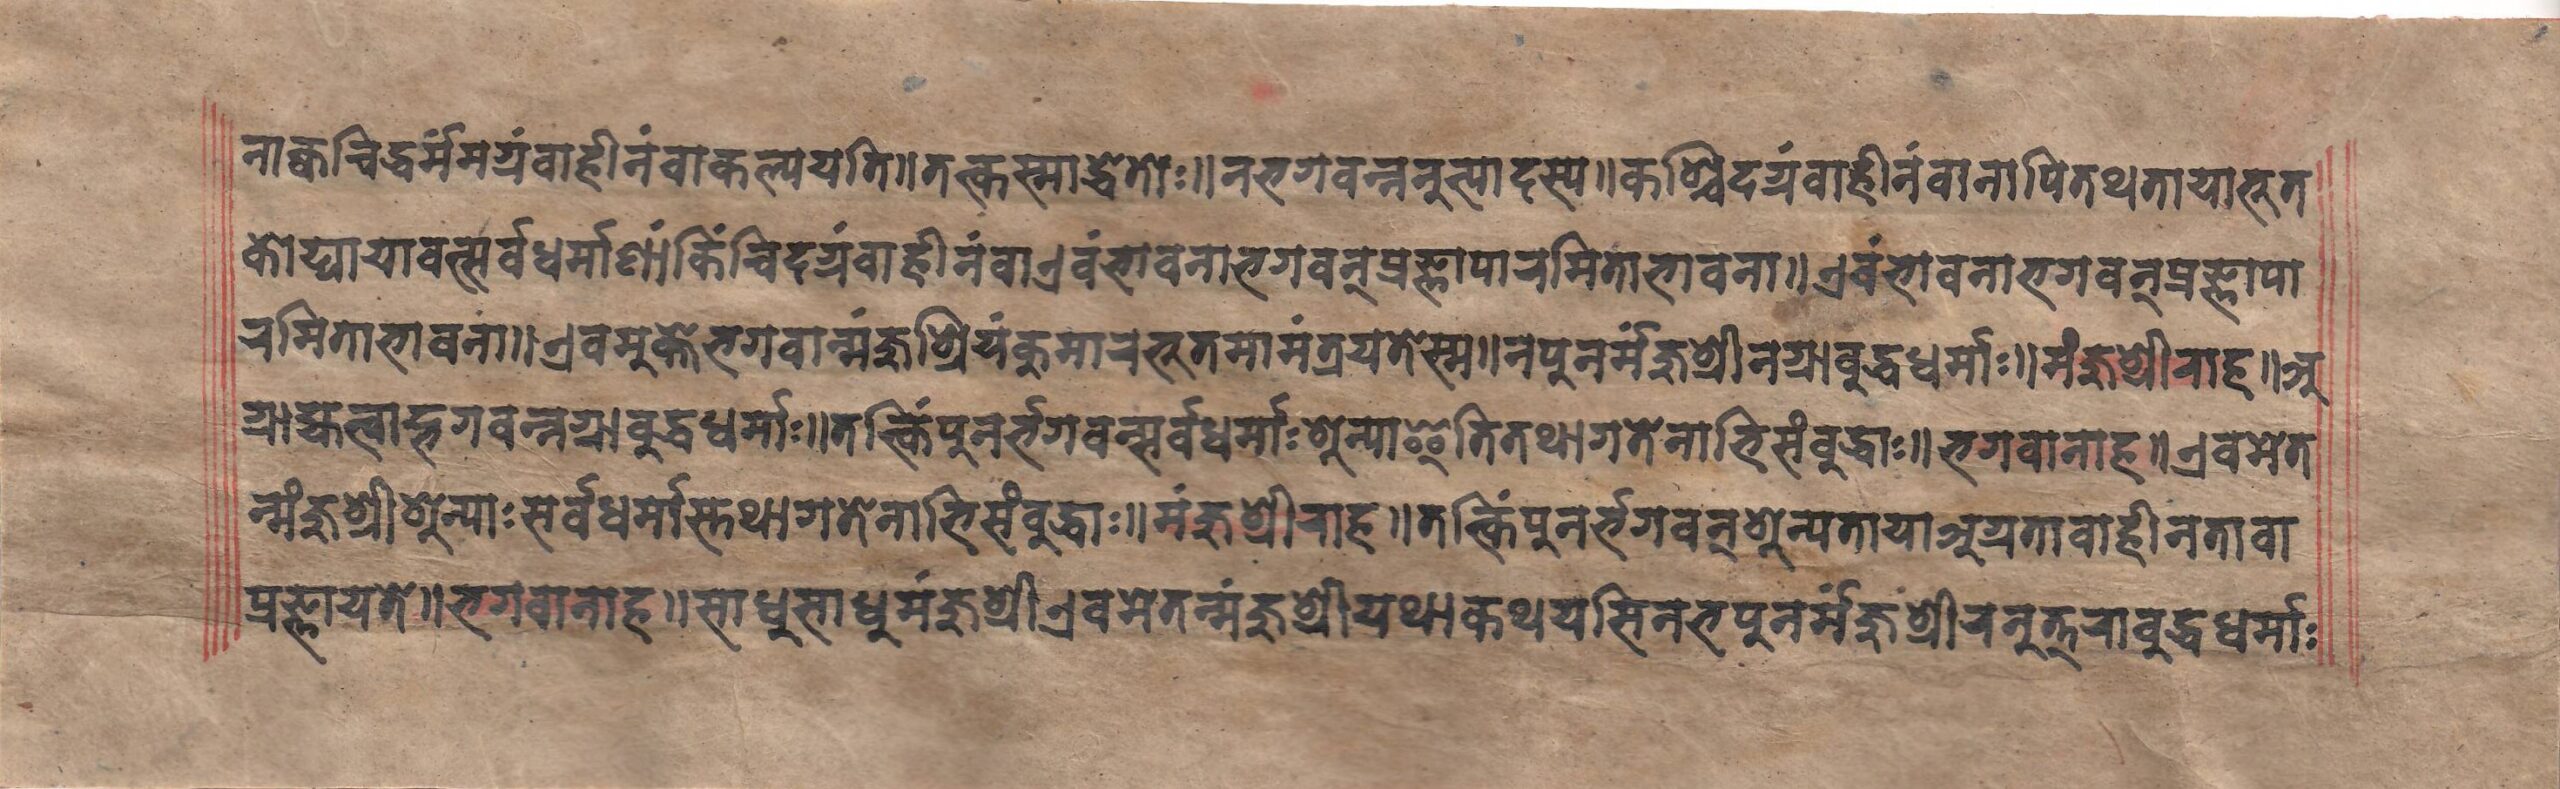 नाक्वचिद्धर्ममग्रंवाहीनंवाकल्पयति॥तत्कस्माद्धेतोः॥नभगवन्ननुत्पादस्य॥कश्चिदग्रंवाहीनंवानापितथतायाभूत
कोट्यायावत्सर्वधर्माणांकिंचिदग्रंवाहीनंवाएवंभावनाभगवन्प्रज्ञापारमिताभावना॥एवंभावनाभगवन्प्रज्ञापा
रमिताभावना॥एवमुक्तेभगवान्मंजुश्रियंकुमारभूतमामंत्रयतेस्म॥नपुनर्मंजुश्रीनग्राबुद्धधर्माः॥मंजुश्रीराह॥अ
ग्राह्यत्वाद्भगवन्नग्राबुद्धधर्माः॥तत्किंपुनर्भगवन्सर्वधर्माःशून्याइतितथागतेनाभिसंबुद्धाः॥भगवानाह॥एवमेत
न्मंजुश्रीशून्याःसर्वधर्मास्तथागतेनाभिसंबुद्धाः॥मंजुश्रीराह॥तत्किंपुनर्भगवन्शून्यतायाअग्रतावाहीनतावा
प्रज्ञायते॥भगवानाह॥साधुसाधुमंजुश्रीएवमेतन्मंजुश्रीयथाकथयसिनभपुनर्मंजुश्रीरनुत्तराबुद्धधर्माः